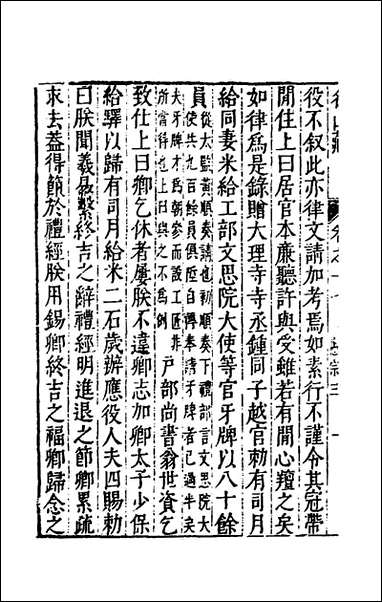 役不叙此亦律文請加考焉如素行不謹令其冠帶
閒住上曰居官本廉聽許與受雖若有閒心羶之矣
如律爲是錄贈大理寺寺丞鍾同子越官勑有司月
給同妻米給工部文思院大使等官牙牌以八十餘
員從太監黃順奏請也初順奏下禮部言文思院大
使共九百餘員俱陞自傳奉請牙牌者已過半矣
夫牙牌才爲朝參而設工匠非
所當得也上曰與之不爲例
戶部尚書翁世資乞
致仕上曰卿乞休者屢朕不違卿志加卿太子少保
給驛以歸有司月給米二石歲辦應役人夫四賜勑
曰朕聞羲易繫終吉之辭禮經明進退之節卿累疏
求去葢得節於禮經朕用錫卿終吉之福卿歸念之